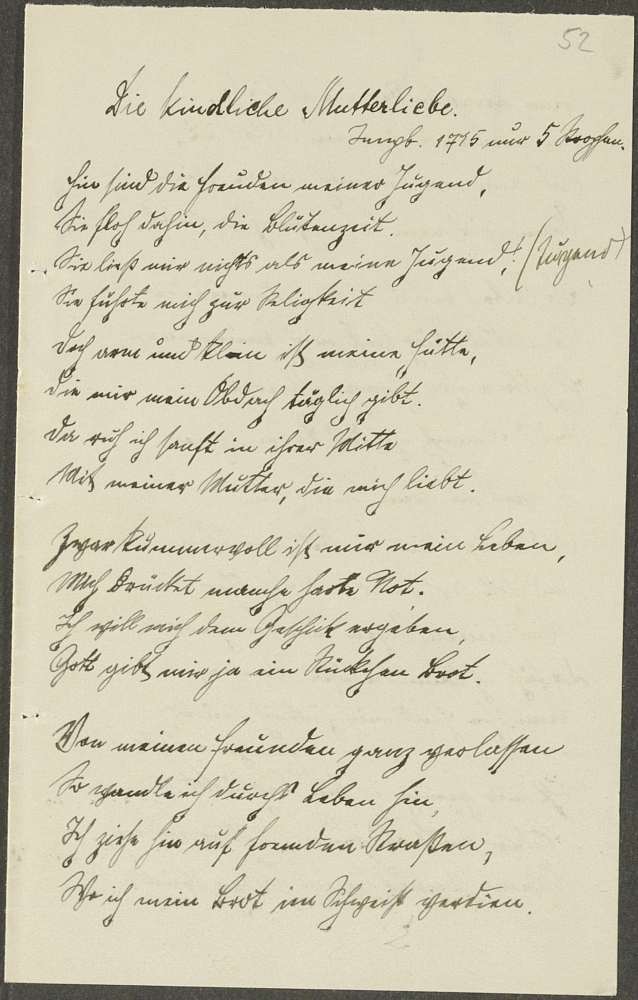 52
Die kindliche Mutterliebe.
1775 nur 5 Strophen.
Hin sind die Freuden meiner Jugend,
Sie floh dahin, die Blütenzeit.
Sie ließ mir nichts als meine Jugend! (Tugend)
Sie führte mich zur Seligkeit
Doch arm und klein ist meine Hütte,
Die mir mein Obdach täglich gibt.
Da ruh ich sanft in ihrer Mitte
Mit meiner Mutter, die mich liebt.
Zwar kummervoll ist mir mein Leben,
Mich drücket manche harte Not.
Ich will mich dem Geschick ergeben,
Gott gibt mir ja ein Stückchen Brot.
Von meinen Freunden ganz verlassen
So wandle ich durchs Leben hin,
Ich ziehe hin auf fremden Straßen,
Wo ich mein Brot im Schweiß verdien.